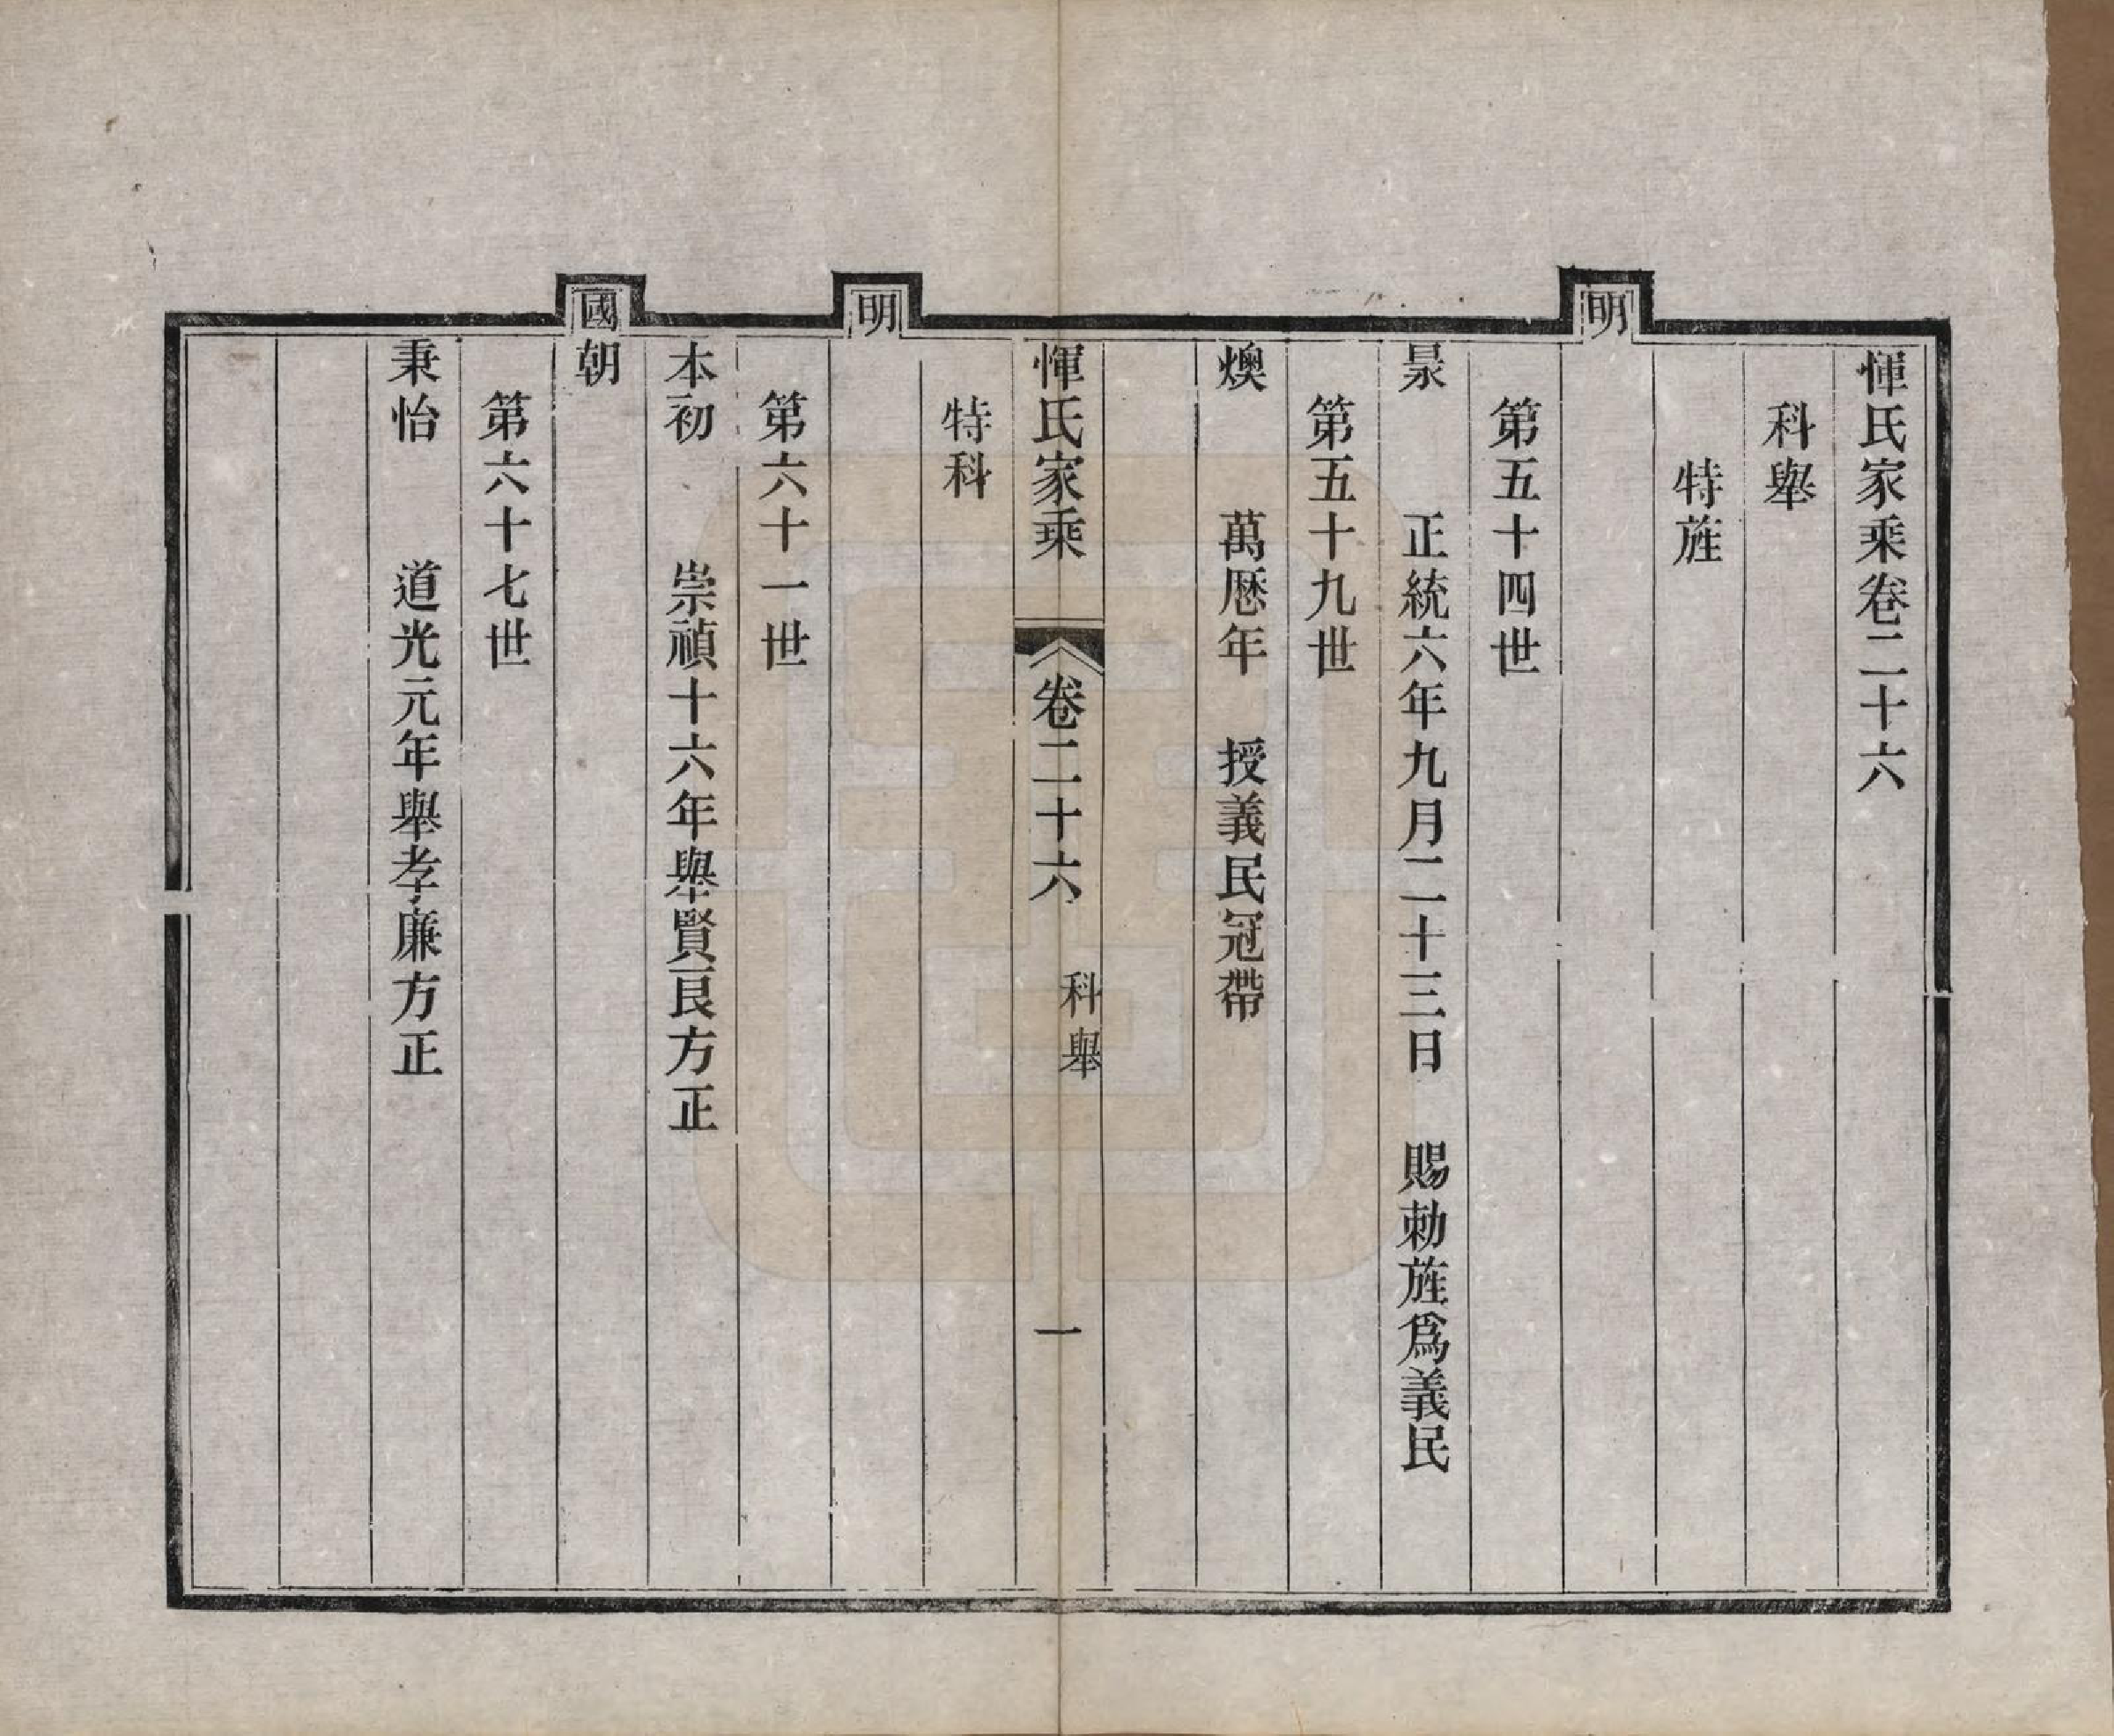 惲氏家乘卷二十六
科舉
特旌
明
第五十四世
杲　正統六年九月二十三日　賜勅旌爲義民
第五十九世
燠　萬厯年　授義民冠帶
惲氏家乘　卷二十六　科舉　一
特科
明
第六十一世
本初　崇禎十六年舉賢良方正
國朝
第六十七世
秉怡　道光元年舉孝廉方正